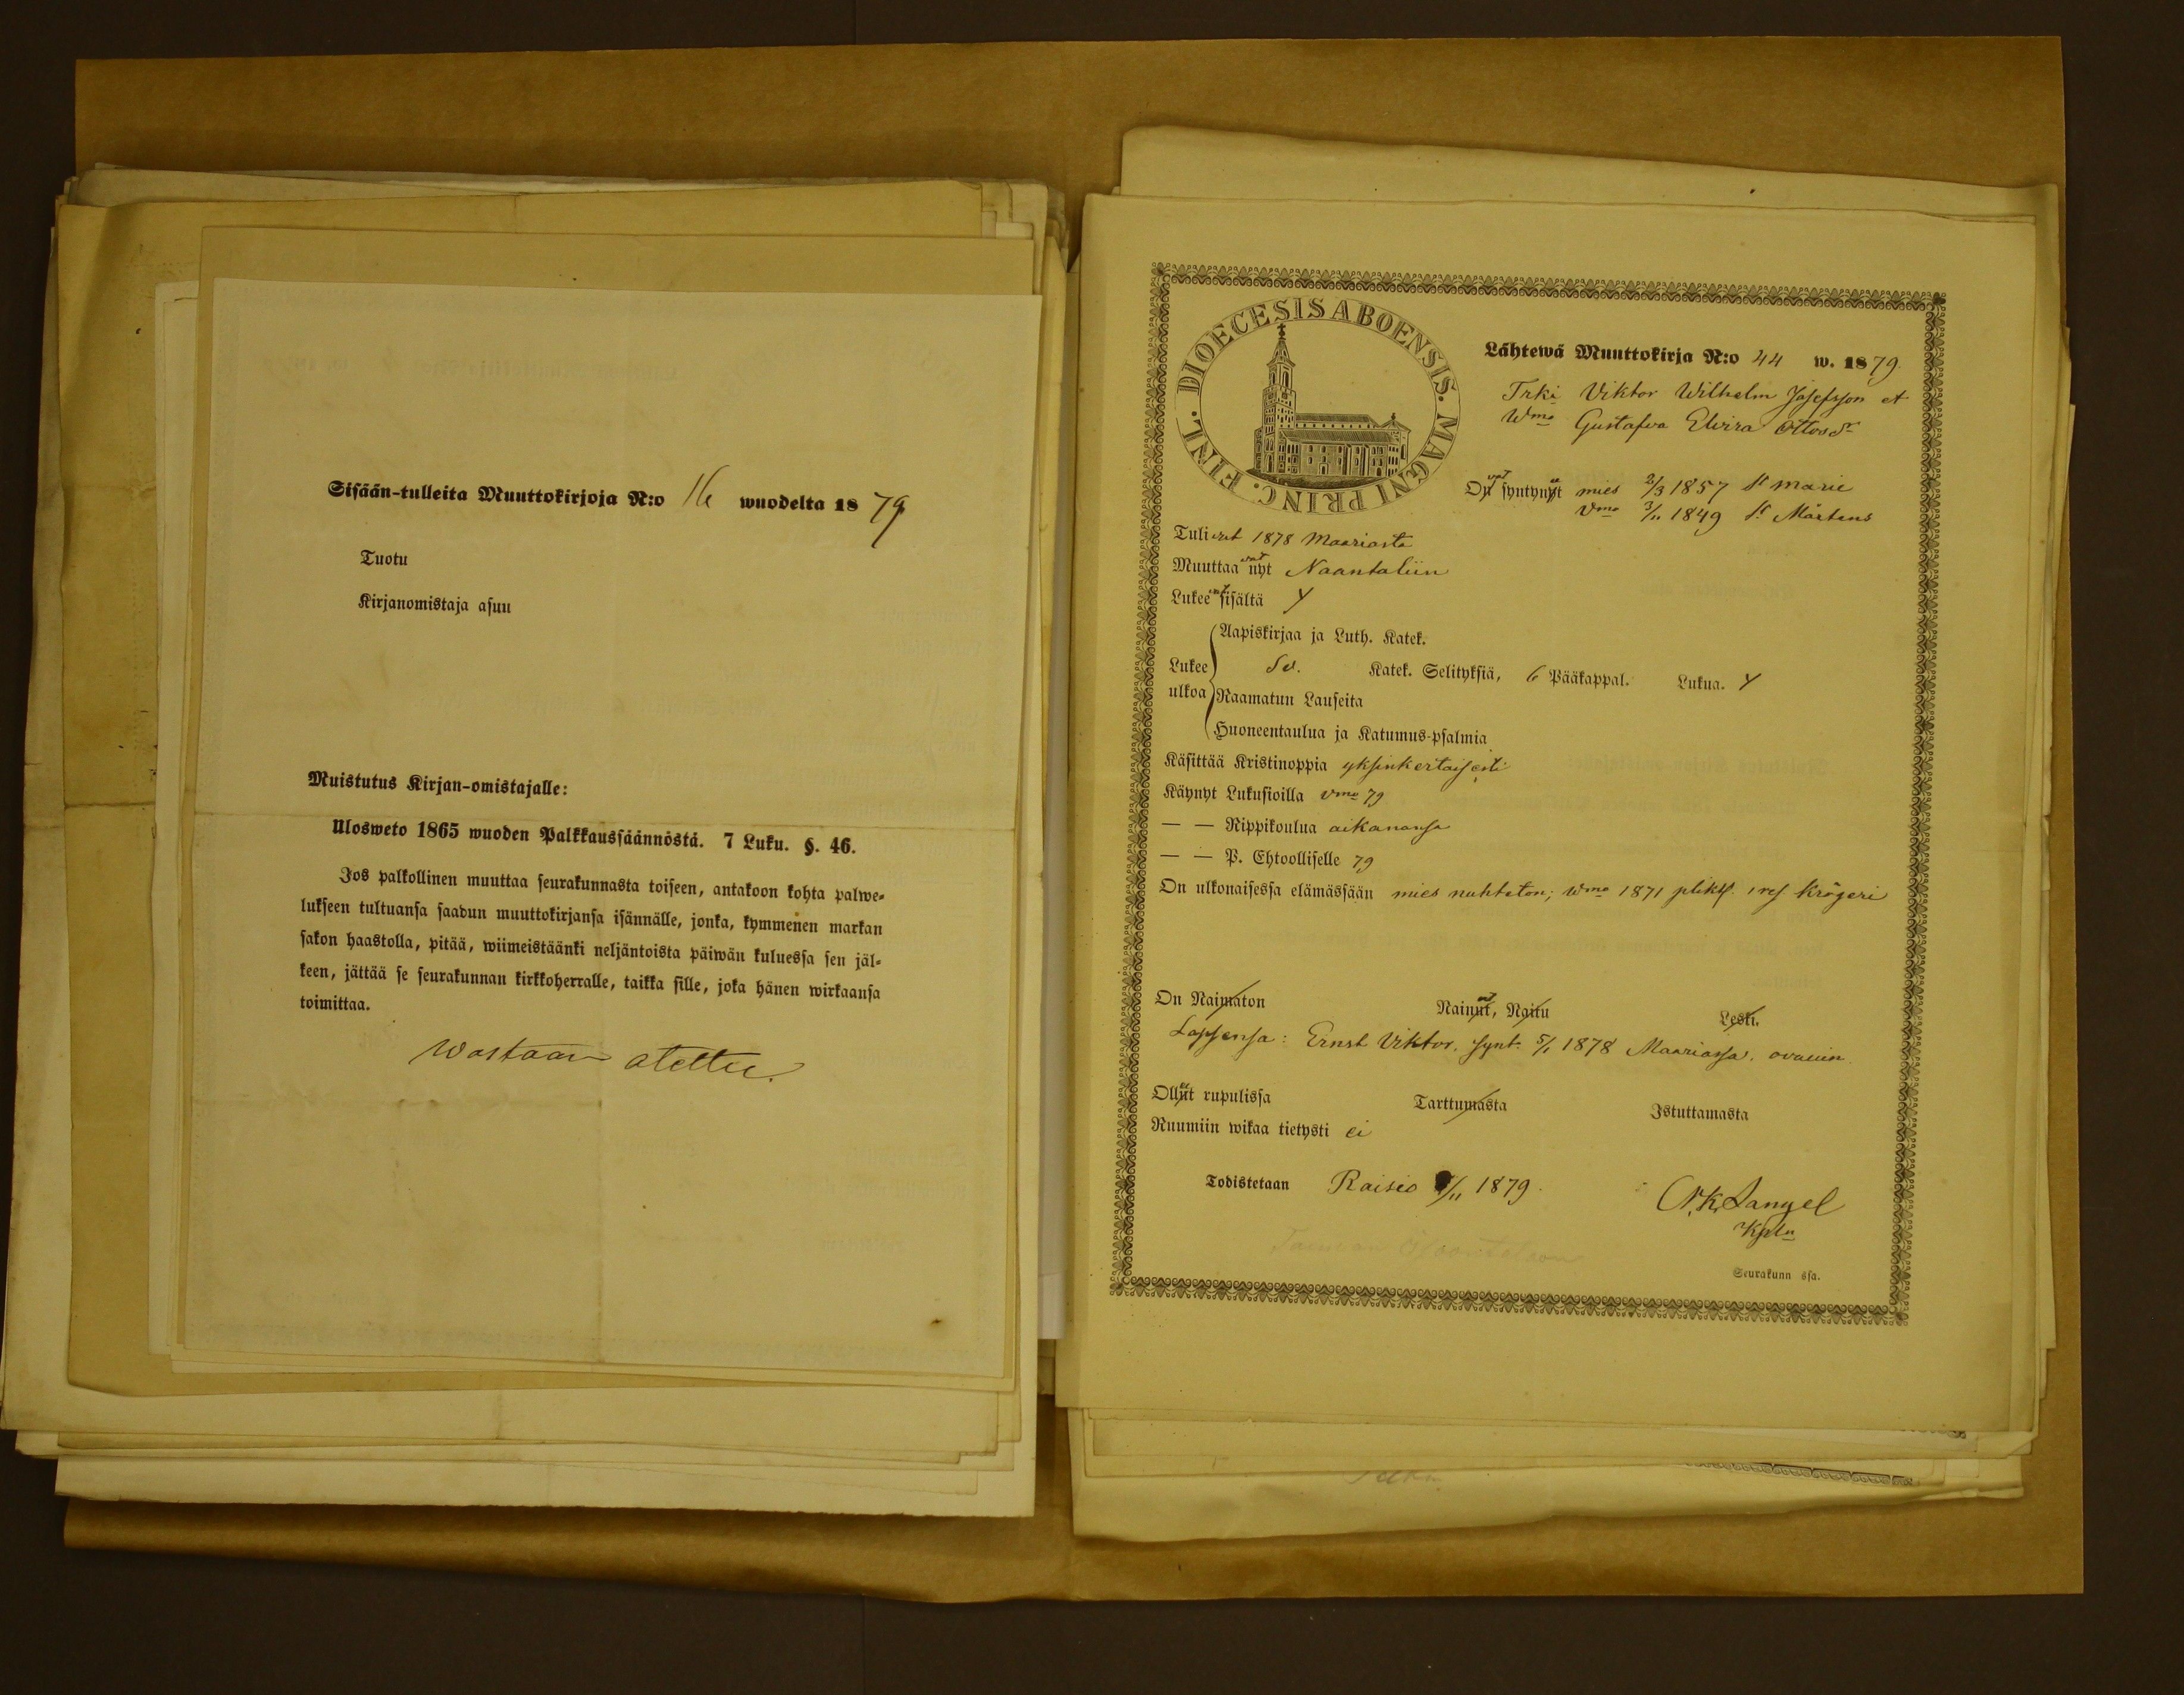 Sisään-tulleita Muuttokirjoja N:o 16 wuodelta 1879
Tuotu
Kirjanomistaja asuu
Muistutus Kirjan-omistajalle:
Ulosweto 1865 wuoden Palkkaussäännöstä. 7 Luku. §. 46.
Jos palkollinen muuttaa seurakunnasta toiseen, antakoon kohta palwe-
lukseen tultuansa saadun muuttokirjansa isännälle, jonka, kymmenen markan
sakon haastolla, pitää, wiimeistäänki neljäntoista päiwän kuluessa sen jäl-
keen, jättää se seurakunnan kirkkoherralle, taikka sille, joka hänen wirkaansa
toimittaa.
Wastaan otettu.
DIOECESIS ABOENSIS. MAGNI PRINC. FINL.
Lähtewä Muuttokirja N:o 44 w. 1879.
Trki Viktor Wilhelm Josefsson et
Wmo Gustafva Elvira Ottosdr
Ovat syntynet mies 2/3 1857 St Marie
Vmo 3/11 1849 St Mårtens
Tulivat 1878 Maariasta
Muuttaavat nyt Naantaliin
Lukeevat sisältä y
Aapiskirjaa ja Luth. Katek.
Lukee ulkoa Sv. Katek. Selityksiä, 6 Pääkappal. Lukua. y
Raamatun Lauseita
Huoneentaulua ja Katumus-psalmia
Käsittää Kristinoppia yksinkertaisesti
Käynyt Lukusioilla vmo 79
— — Rippikoulua aikanansa
— — P. Ehtoolliselle 79
On ulkonaisessa elämässään mies nuhteton; Wmo 1871 Krögeri
On Naimaton Nainut, Naitu Leski.
Lapsensa: Ernst Viktor. synt. 5/1 1878 Maariassa.
Ollut rupulissa Tarttumasta Istuttamasta
Ruumiin wikaa tietysti ei
Todistetaan Raisio /11 1879.
Langel
Kpln
Seurakunn ssa.